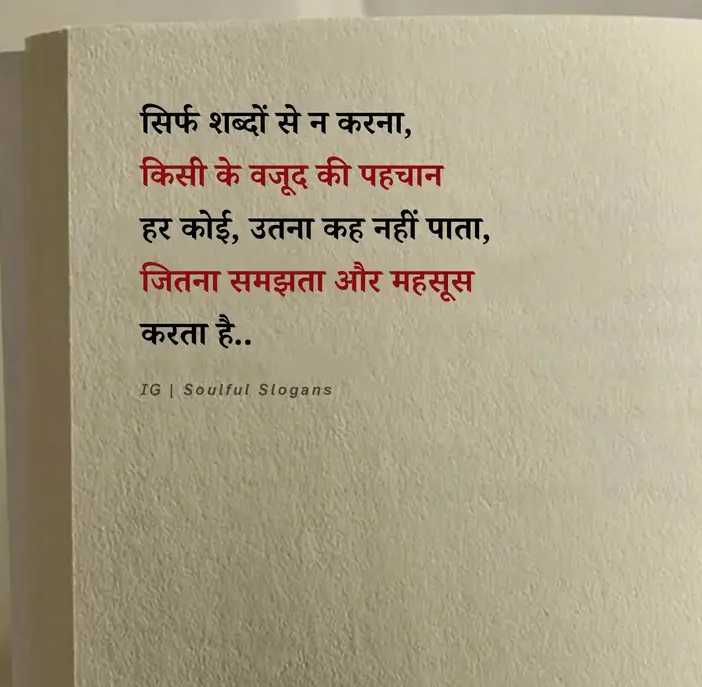 सिर्फ शब्दों से न करना,
किसी के वजूद की पहचान
हर कोई, उतना कह नहीं पाता,
जितना समझता और महसूस
करता है..
IG | Soulful Slogans